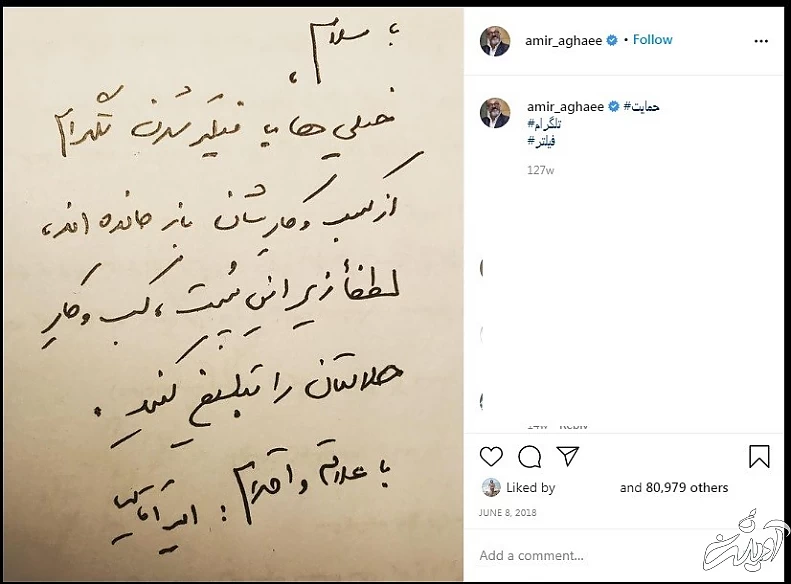 با سلام،
خیلی ها با فیلتر شدن تلگرام
از کسب و کارشان باز مانده اند،
لطفاً زیر این پُست، کسب و کارِ
حلالتان را تبلیغ کنید.
با علاقه و احترام: امیر آقایی
amir_aghaee • Follow
amir_aghaee #حمایت
#تلگرام
#فیلتر
127w
Liked by and 80,979 others
JUNE 8, 2018
Add a comment...